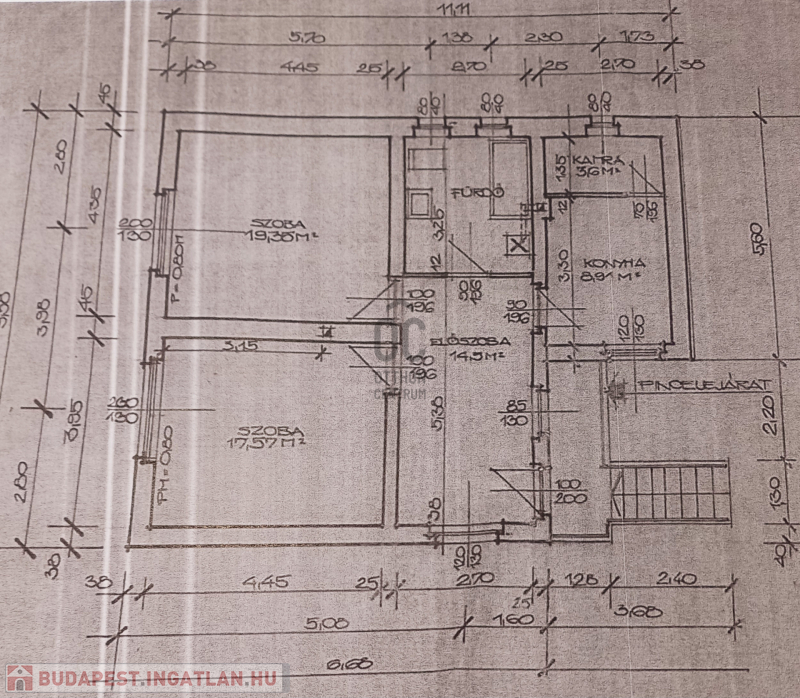 11,11
5,70 138 2,30 1,73
38 4,45 25 2,70 25 2,70 38
45
80
40
80
40
80
40
2,80
4,35
KAMRA
3,6 M²
1,35
FÜRDŐ
3,25
12
12
75
196
200
130
SZOBA
19,35 M²
P=0,80M
KONYHA
8,91 M²
3,30
5,60
3,98
90
196
100
196
90
196
45
120
130
ELŐSZOBA
14,5 M²
3,15
OC
OTTHON
CENTRUM
100
196
PINCELEJÁRAT
200
130
3,95
5,38
85
130
2,20
SZOBA
17,57 M²
PM=0,80
2,80
100
200
1,30
38
120
130
38
40
38 4,45 25 2,70 128 2,40
25
5,08 1,60 3,68
6,68
BUDAPEST.INGATLAN.HU